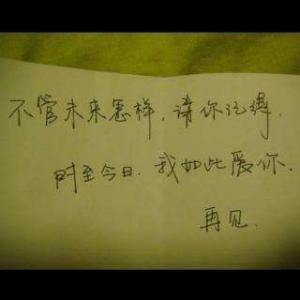 不管未来怎样，请你记得，
时至今日，我如此爱你．
再见．